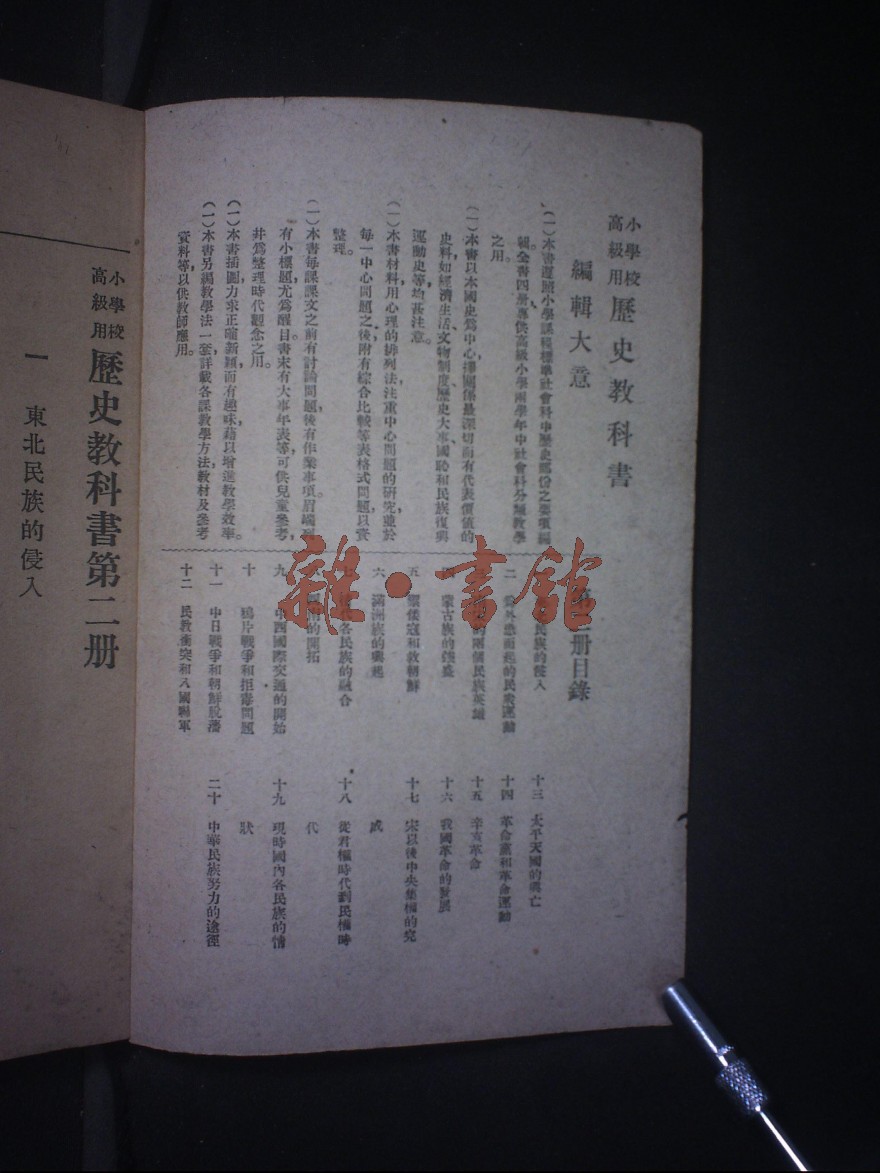 小學校
高級用
歷史教科書
編輯大意
(一)本書遵照小學課程標準社會科中歷史部份之要項編
輯。全書四册、專供高級小學兩學年中社會科分類教學
之用。
(一)本書以本國史爲中心、擇關係最深切而有代表價值的
史料、如經濟生活、文物制度、歷史大事、國恥和民族復興
運動史等、均甚注意。
(一)本書材料用心理的排列法、注重中心問題的研究、並於
每一中心問題之後、附有綜合比較等表格式問題、以資
整理。
(一)本書每課課文之前有討論問題、後有作業事項。眉端
有小標題、尤爲醒目。書末有大事年表等、可供兒童參考、
幷爲整理時代觀念之用。
(一)本書插圖力求正確新穎而有趣味、藉以增進教學效率。
(一)本書另編教學法一套、詳載各課教學方法教材及參考
資料等、以供教師應用。
册目錄
民族的侵入
二 外患而起的民衆運動
的兩個民族英雄
蒙古族的
五 倭寇和救朝鮮
六 滿洲族的興起
各民族的融合
的開拓
九 中西國際交通的開始
十 鴉片戰爭和拒毒問題
十一 中日戰爭和朝鮮脫藩
十二 民教衝突和八國聯軍
十三 太平天國的興亡
十四 革命黨和革命運動
十五 辛亥革命
十六 我國革命的發展
十七 宋以後中央集權的完
成
十八 從君權時代到民權時
代
十九 現時國內各民族的情
狀
二十 中華民族努力的途徑
雜·書館
小學校
高級用
歷史教科書第二册
一 東北民族的侵入